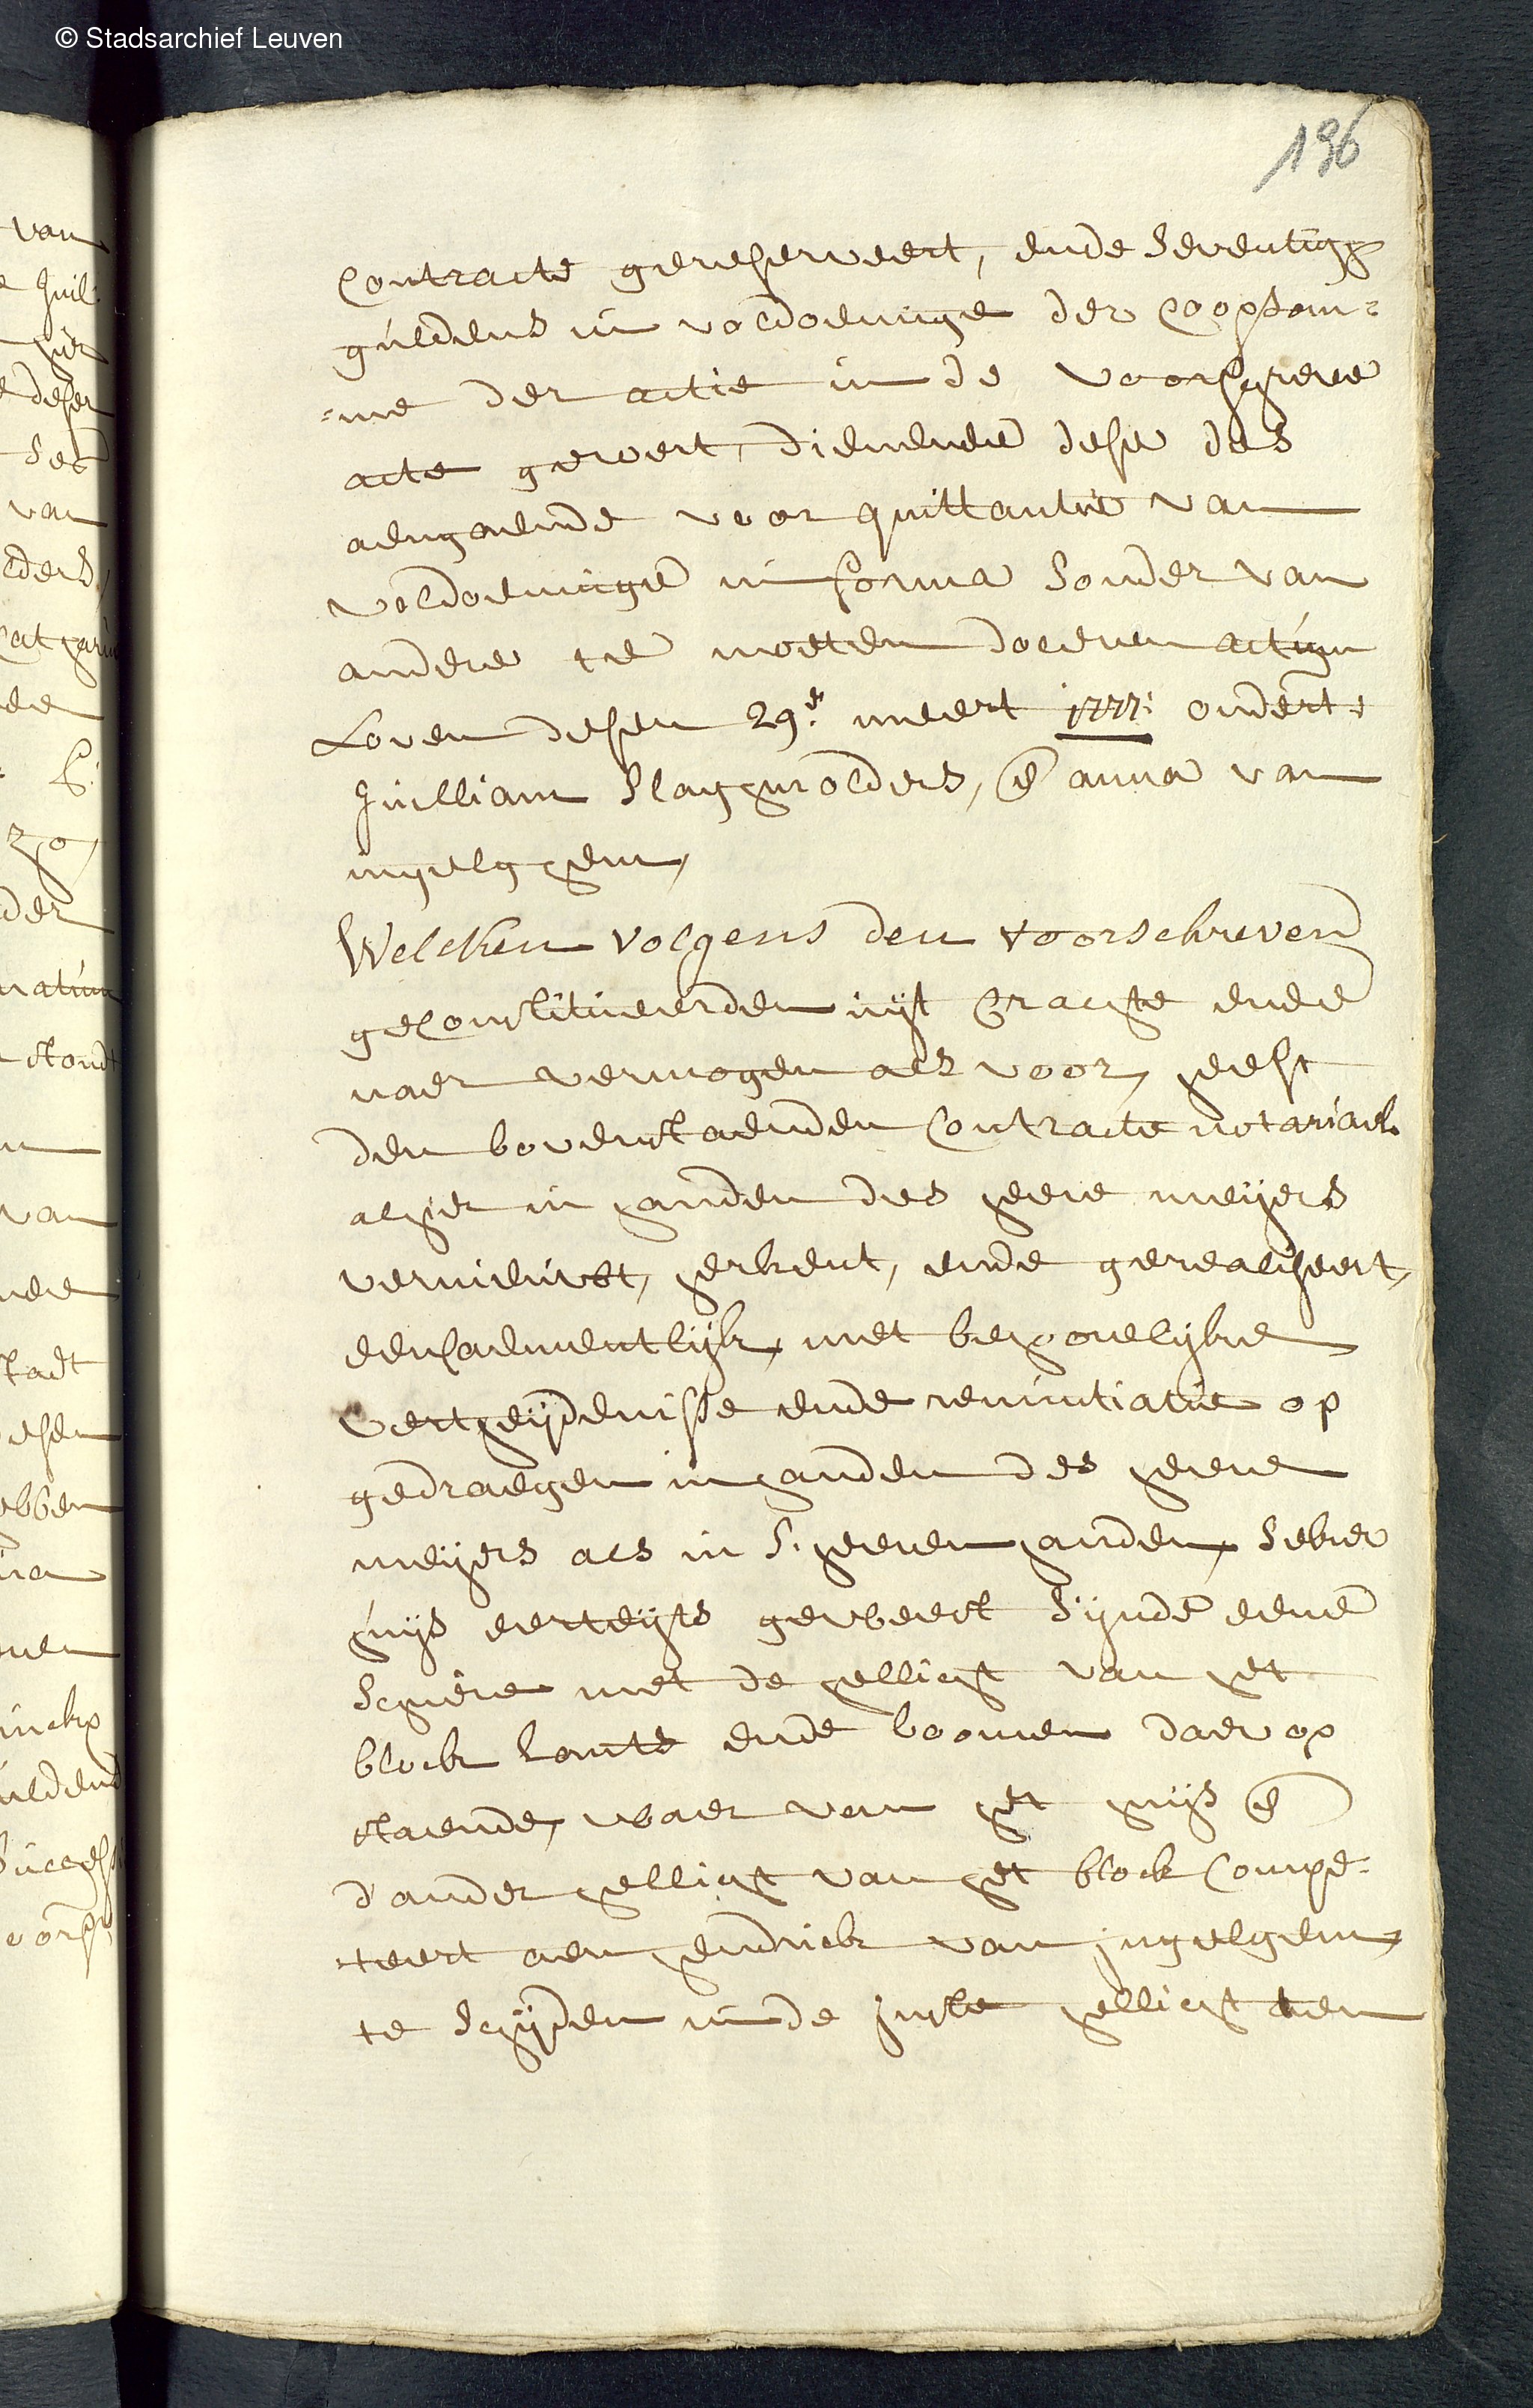 © Stadsarchief Leuven
196
contracte gereserveert, ende seventigh
guldens in voldoeninge der coopsom=
=me der actie in de voorschreve
acte gevoert, dienende dese des
aengaende voor quittantie van
voldoeninge in forma sonder van
andere te moeten doceren actum
Loven desen 29.e meert 1777: ondert:
Guilliam Slaghmolders, en anna van
ingelghem,
Welcken volgens den voorschreven
geconstitueerden uijt crachte ende
naer vermogen als voor, heeft
den bovenstaenden contracte notariael
alhier in handen des heere meijers
vernieuwt, herkent, ende gerealiseert,
eensaementlijk, met behoorelijke
vertheijdenisse ende renuntiatie op
gedraegen in handen des heere
meijers als in S. heeren handen, seker
huijs eertijts geweest sijnde eene
schure met de hellicht van het
block lants ende boomen daer op
staende, waer van het huijs en
d'ander hellicht van het block compe=
teert aen hendrick van ingelghem,
te scheijden in de juste hellicht den
van
Guil:
hier
deser
van
ende
van
stadt
desen
ebben